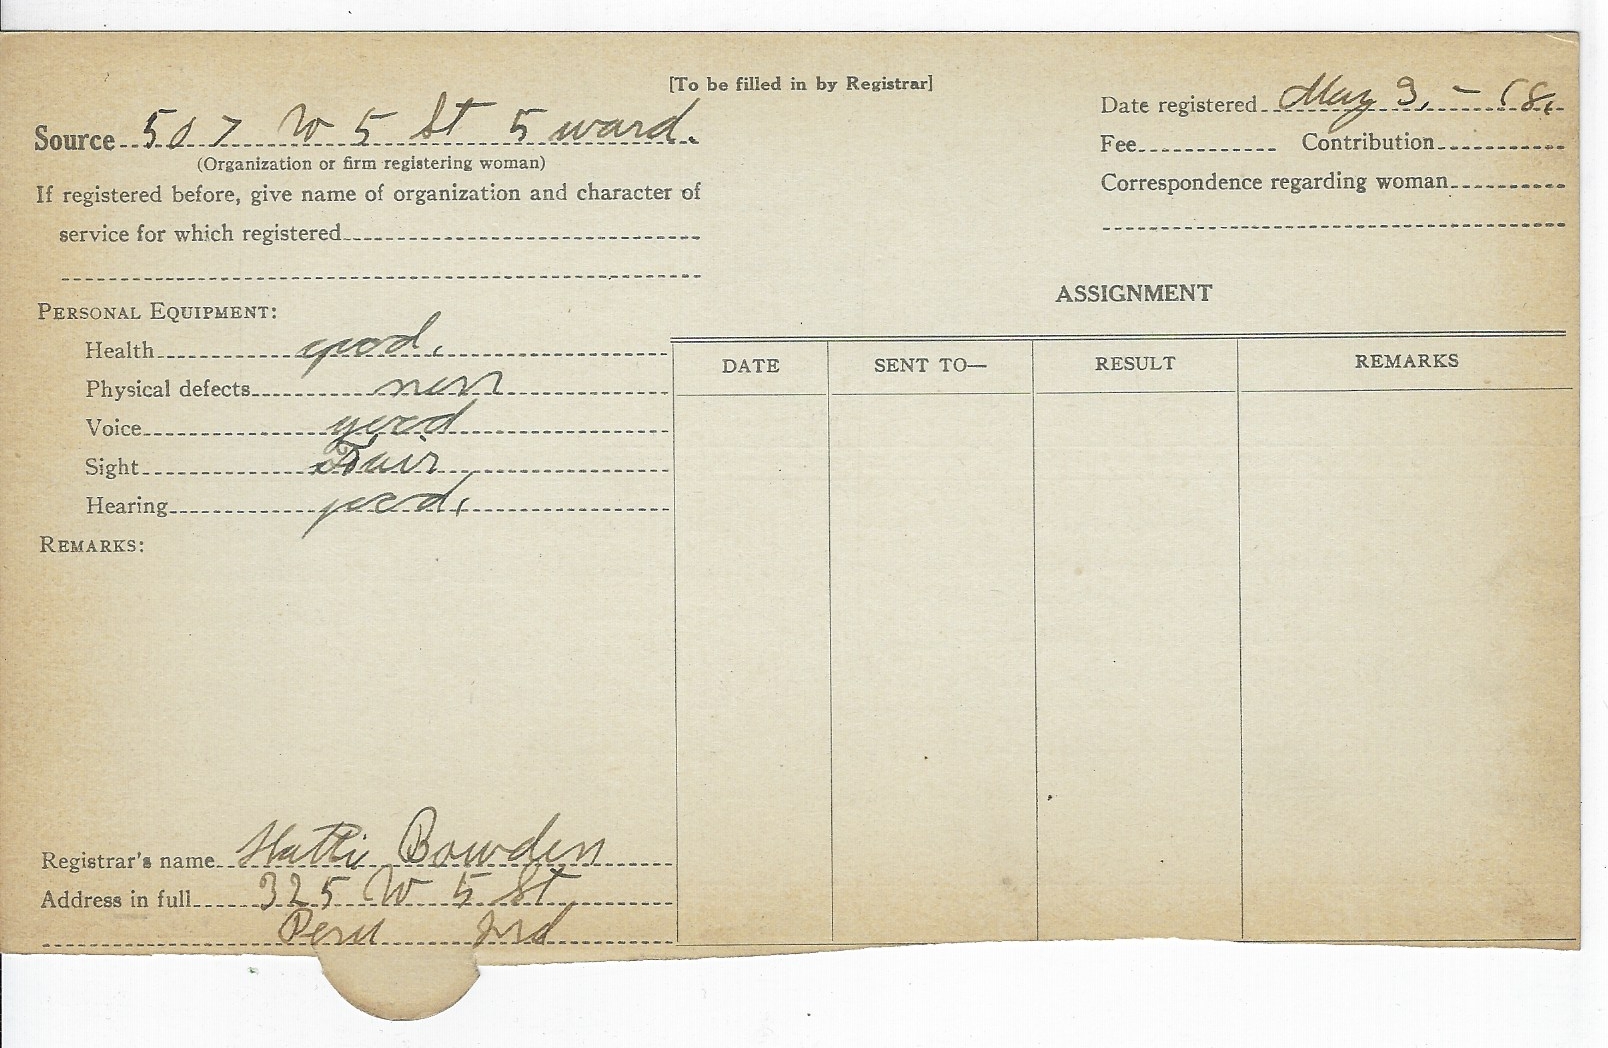 [To be filled in by Registrar]
Source 507 W 5 St 5 ward.
(Organization or firm registering woman)
If registered before, give name of organization and character of
service for which registered
Date registered May 3, - 18,
Fee Contribution
Correspondence regarding woman
PERSONAL EQUIPMENT:
Health good.
Physical defects non
Voice good
Sight Fair
Hearing good,
REMARKS:
ASSIGNMENT
DATE SENT TO— RESULT REMARKS
Registrar's name Hatti Bowden
Address in full 325 W 5 St
Peru Ind